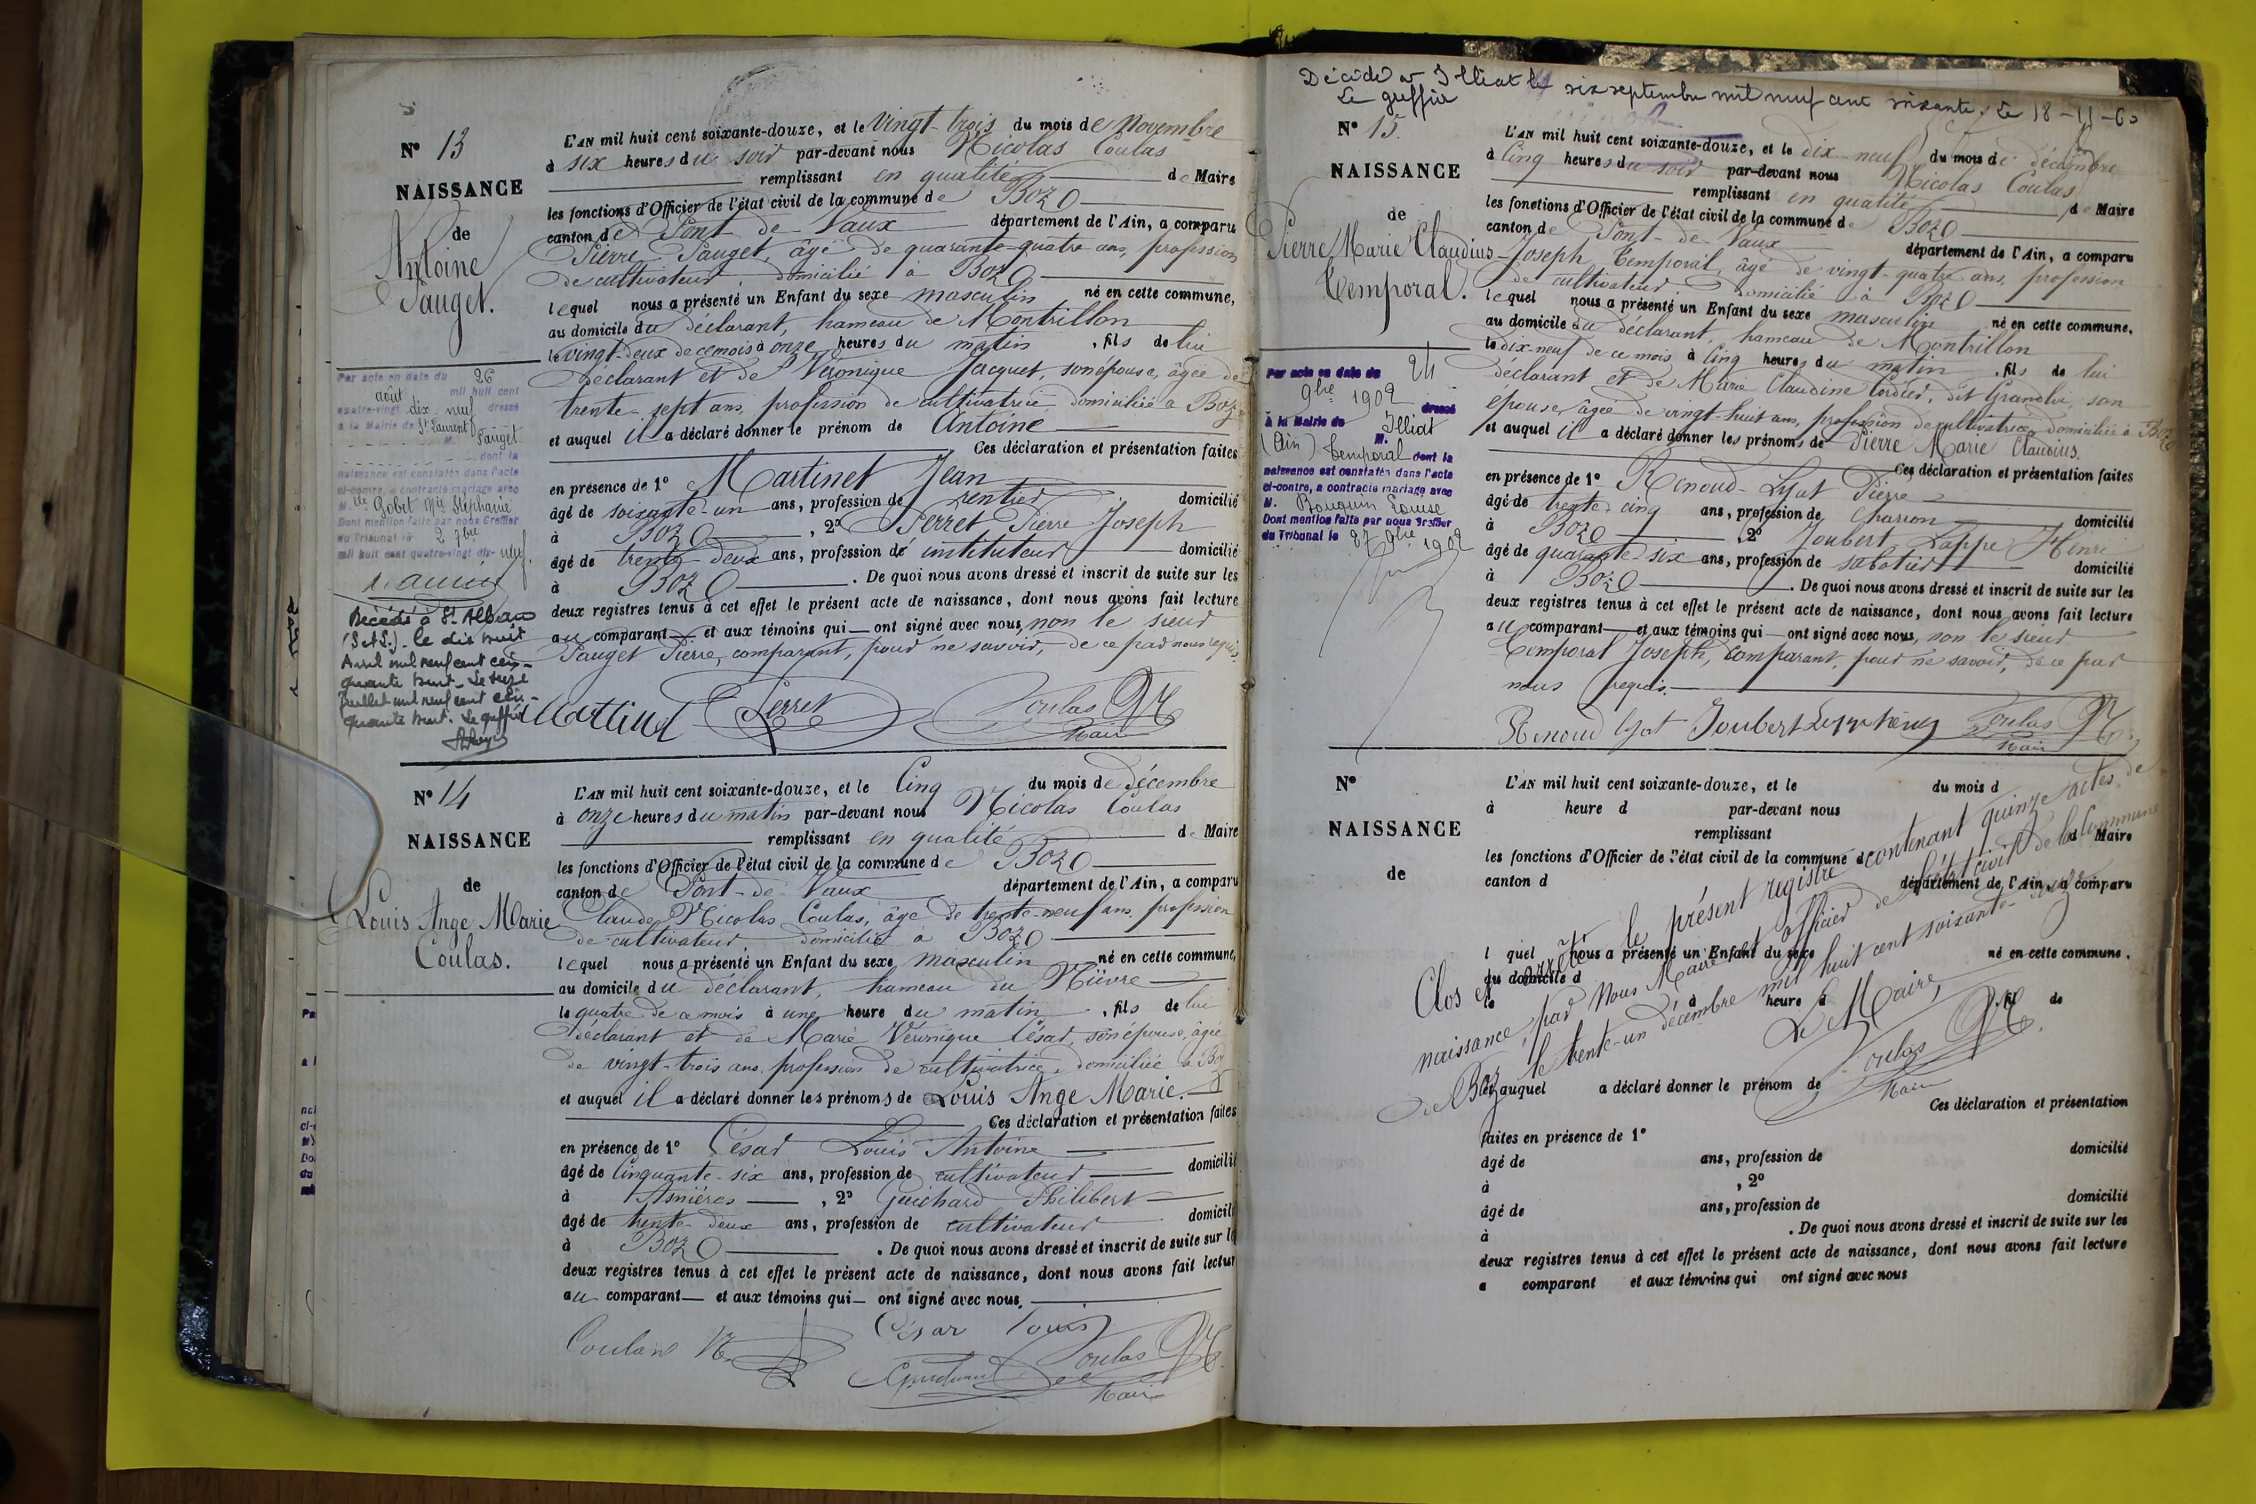 N° 13
NAISSANCE
de
Antoine
Pauget.
Par acte en date du 26
août mil huit cent
quatre-vingt dix-neuf dressé
à la Mairie de St Laurent
M. Pauget
dont la
naissance est constatée dans l'acte
ci-contre, a contracté mariage avec
M. lle Gobet Mie Stéphanie
Dont mention faite par nous Greffier
du Tribunal le 2 7bre
mil huit cent quatre-vingt dix-neuf.
Décédé à St Albain
(S et L.) le dix huit
Avril mil neuf cent cin-
quante huit. Le seize
juillet mil neuf cent cin-
quante huit. Le greffier
L'AN mil huit cent soixante-douze, et le Vingt-trois du mois de Novembre
à six heures du soir par-devant nous Nicolas Coulas
remplissant en qualité de Maire
les fonctions d'Officier de l'état civil de la commune de Boz
canton de Pont-de-Vaux département de l'Ain, a comparu
Pierre Pauget, âgé de quarante-quatre ans, profession
de cultivateur, domicilié à Boz
lequel nous a présenté un Enfant du sexe masculin né en cette commune,
au domicile du déclarant, hameau de Montrillon
le vingt-deux de ce mois à onze heures du matin, fils de lui
déclarant et de Véronique Jacquet, son épouse, âgée de
trente-sept ans, profession de cultivatrice, domiciliée à Boz
et auquel il a déclaré donner le prénom de Antoine
Ces déclaration et présentation faites
en présence de 1° Martinet Jean
âgé de soixante-un ans, profession de rentier domicilié
à Boz, 2° Perret Pierre Joseph
âgé de trente-deux ans, profession de instituteur domicilié
à Boz. De quoi nous avons dressé et inscrit de suite sur les
deux registres tenus à cet effet le présent acte de naissance, dont nous avons fait lecture
au comparant et aux témoins qui ont signé avec nous, non le sieur
Pauget Pierre, comparant, pour ne savoir, de ce par nous requis.
Martinet Perret Coulas N
Maire
N° 14
NAISSANCE
de
Louis Ange Marie
Coulas.
L'AN mil huit cent soixante-douze, et le Cinq du mois de décembre
à onze heures du matin par-devant nous Nicolas Coulas
remplissant en qualité de Maire
les fonctions d'Officier de l'état civil de la commune de Boz
canton de Pont-de-Vaux département de l'Ain, a comparu
Claude Nicolas Coulas, âgé de trente-neuf ans, profession
de cultivateur, domicilié à Boz
lequel nous a présenté un Enfant du sexe masculin né en cette commune,
au domicile du déclarant, hameau du
le quatre de ce mois à une heure du matin, fils de lui
déclarant et de Marie Véronique César, son épouse, âgée
de vingt-trois ans, profession de cultivatrice, domiciliée à Boz
et auquel il a déclaré donner les prénoms de Louis Ange Marie.
Ces déclaration et présentation faites
en présence de 1° César Louis Antoine
âgé de cinquante-six ans, profession de cultivateur domicilié
à Asnières, 2° Guichard Philibert
âgé de trente-deux ans, profession de cultivateur domicilié
à Boz. De quoi nous avons dressé et inscrit de suite sur les
deux registres tenus à cet effet le présent acte de naissance, dont nous avons fait lecture
au comparant et aux témoins qui ont signé avec nous.
Coulas N César Louis
Guichard Coulas N
Maire
Décédé à Illiat le six septembre mil neuf cent soixante. Le 18-11-60
Le greffier
N° 15.
NAISSANCE
de
Pierre Marie Claudius
Temporal.
Par acte en date du 24
9bre 1902 dressé
à la Mairie de Illiat
(Ain) M. Temporal dont la
naissance est constatée dans l'acte
ci-contre, a contracté mariage avec
M. Bouquin Louise
Dont mention faite par nous Greffier
du Tribunal le 27 9bre 1902
L'AN mil huit cent soixante-douze, et le dix-neuf du mois de décembre
à Cinq heures du soir par-devant nous Nicolas Coulas
remplissant en qualité de Maire
les fonctions d'Officier de l'état civil de la commune de Boz
canton de Pont-de-Vaux département de l'Ain, a comparu
Joseph Temporal, âgé de vingt-quatre ans, profession
de cultivateur, domicilié à Boz
lequel nous a présenté un Enfant du sexe masculin né en cette commune,
au domicile du déclarant, hameau de Montrillon
le dix-neuf de ce mois à Cinq heures du matin, fils de lui
déclarant et de Marie Claudine Cordier, dit Grandin, son
épouse, âgée de vingt-huit ans, profession de cultivatrice, domiciliée à Boz
et auquel il a déclaré donner les prénoms de Pierre Marie Claudius.
Ces déclaration et présentation faites
en présence de 1° Renoud-Lyat Pierre
âgé de trente-cinq ans, profession de charron domicilié
à Boz, 2° Joubert Lappe Henri
âgé de quarante-six ans, profession de sabotier domicilié
à Boz. De quoi nous avons dressé et inscrit de suite sur les
deux registres tenus à cet effet le présent acte de naissance, dont nous avons fait lecture
au comparant et aux témoins qui ont signé avec nous, non le sieur
Temporal Joseph, comparant, pour ne savoir, de ce par
nous requis.
Renoud Lyat Joubert Coulas N
Maire
N°
NAISSANCE
de
L'AN mil huit cent soixante-douze, et le du mois d
à heure d par-devant nous
remplissant d Maire
les fonctions d'Officier de l'état civil de la commune d
canton d département de l'Ain, a comparu
l quel nous a présenté un Enfant du sexe né en cette commune,
au domicile d
le à heure d , fil de
et auquel a déclaré donner le prénom de
Ces déclaration et présentation
faites en présence de 1°
âgé de ans, profession de domicilié
à , 2°
âgé de ans, profession de domicilié
à . De quoi nous avons dressé et inscrit de suite sur les
deux registres tenus à cet effet le présent acte de naissance, dont nous avons fait lecture
a comparant et aux témoins qui ont signé avec nous
Clos et arrêté le présent registre contenant quinze actes de
naissance, par Nous Maire et officier de l'état civil de la Commune
de Boz, le trente-un décembre mil huit cent soixante-douze.
Le Maire,
Coulas N
Maire